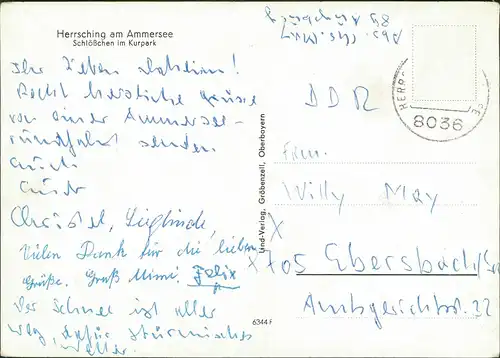 Herrsching am Ammersee
Schlößchen im Kurpark
Ihr Lieben daheim!
Recht herzliche Grüsse
von einer Ammersee-
rundfahrt senden
Christel, Sieglinde,
Vielen Dank für die lieben
Grüße. Gruß Mimi. Felix
Der Schnee ist aller
weg, dafür stürmisches
Wetter.
Lind-Verlag, Gröbenzell, Oberbayern
6344 F
Abs.
89 Augsburg
HERRS
8036
DDR
Fam.
Willy May
X
X 705 Ebersbach/
Amtsgerichtsstr. 22